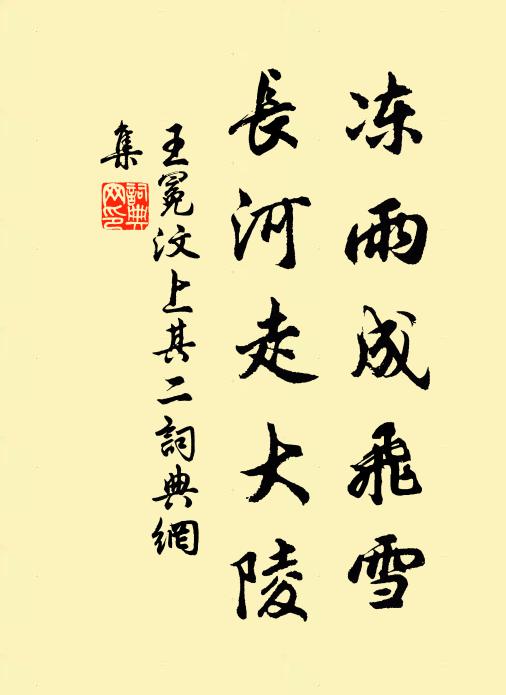 冻雨成飛雪
長河走大陵
王冕汶上其二詞典網
集
詞典网印